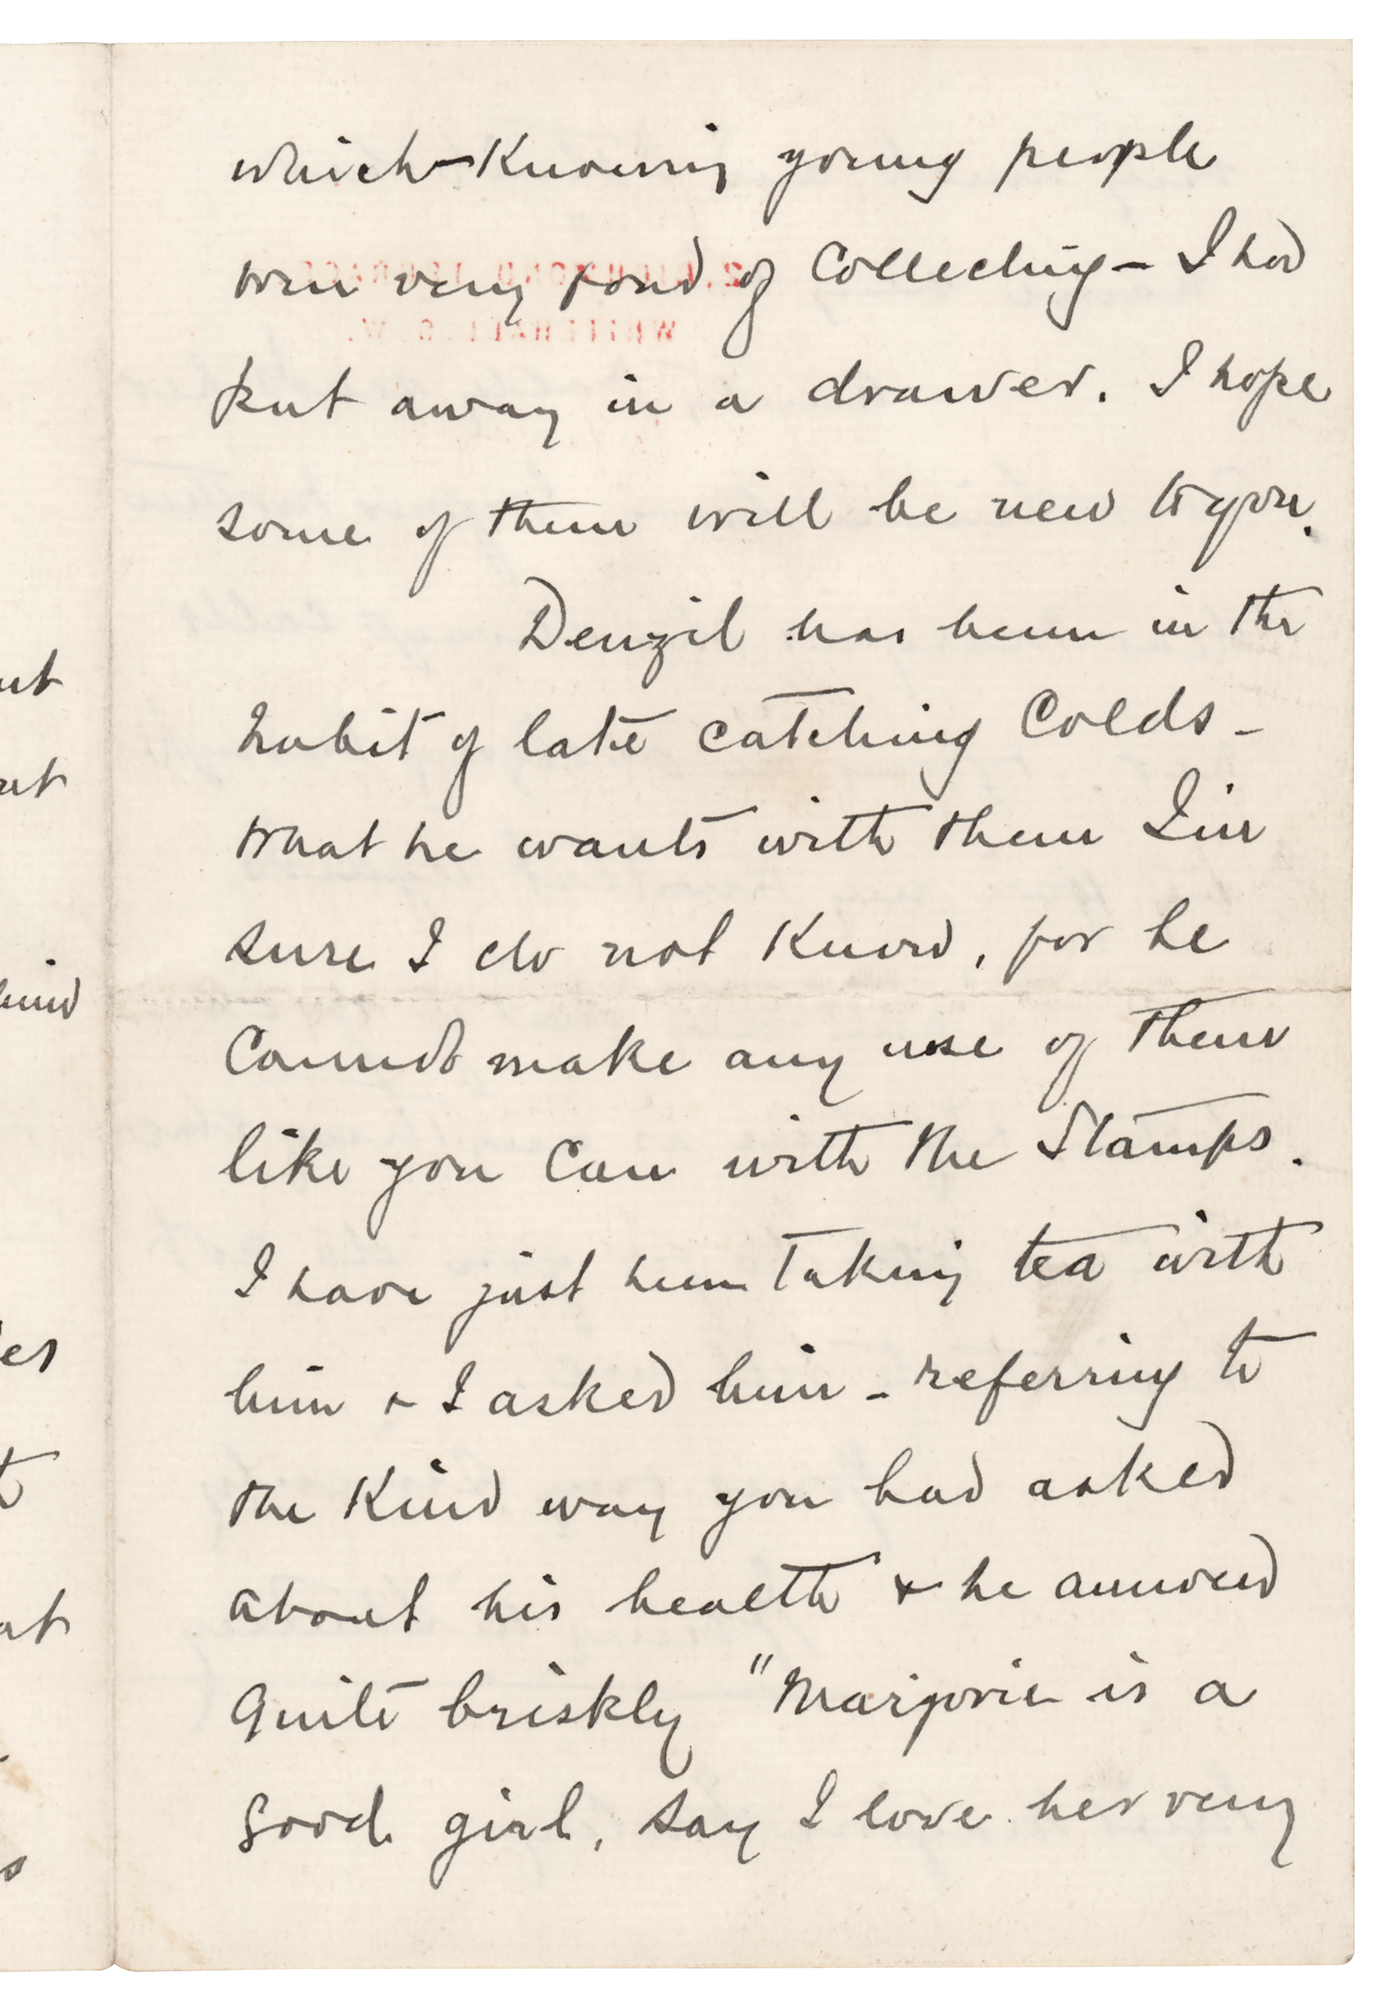 which - Knowing young people
were very fond of Collecting - I had
put away in a drawer. I hope
some of them will be new to you.
Denzil has been in the
habit of late catching Colds -
what he wants with them I'm
sure I do not Know, for he
Cannot make any use of them
like you Can with the Stamps.
I have just been taking tea with
him & I asked him - referring to
the Kind way you had asked
about his health & he answered
quite briskly "Marjorie is a
good girl, say I love her very
ut
hind
es
at
2, RICHMOND TERRACE,
WHITEHALL, S.W.